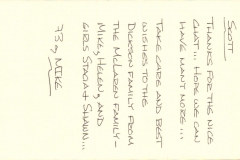 SCOTT
THANKS FOR THE NICE
CHAT... HOPE WE CAN
HAVE MANY MORE...
TAKE CARE AND BEST
WISHES TO THE
DICKSON FAMILY FROM
THE McLAREN FAMILY-
MIKE, HELEN, AND
GIRLS STACIA & SHAWN...
73 MIKE